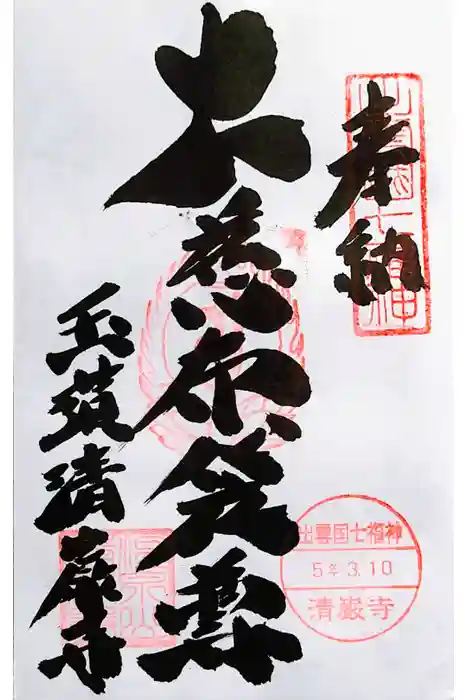 奉納
大慈布袋尊
玉造清巌寺
出雲国七福神
出雲国七福神
5年3.10
清巖寺